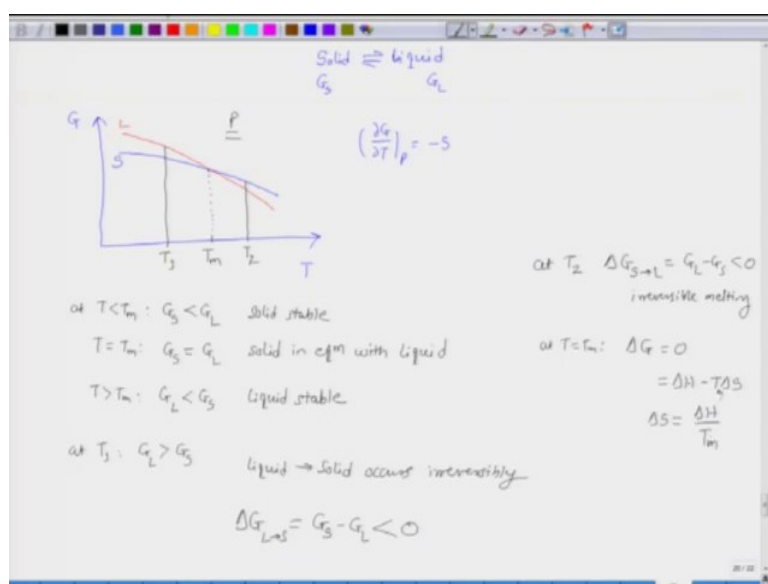 Solid ⇌ Liquid
G_S G_L
G L P
S
(∂G/∂T)_P = -S
T_1 T_m T_2
T
at T<T_m : G_S < G_L Solid stable
T = T_m : G_S = G_L solid in eqm with liquid
T > T_m : G_L < G_S Liquid stable
at T_1 : G_L > G_S
liquid → Solid occurs irreversibly
ΔG_L→S = G_S - G_L < 0
at T_2 ΔG_S→L = G_L - G_S < 0
irreversible melting
at T = T_m : ΔG = 0
= ΔH - TΔS
ΔS = ΔH/T_m